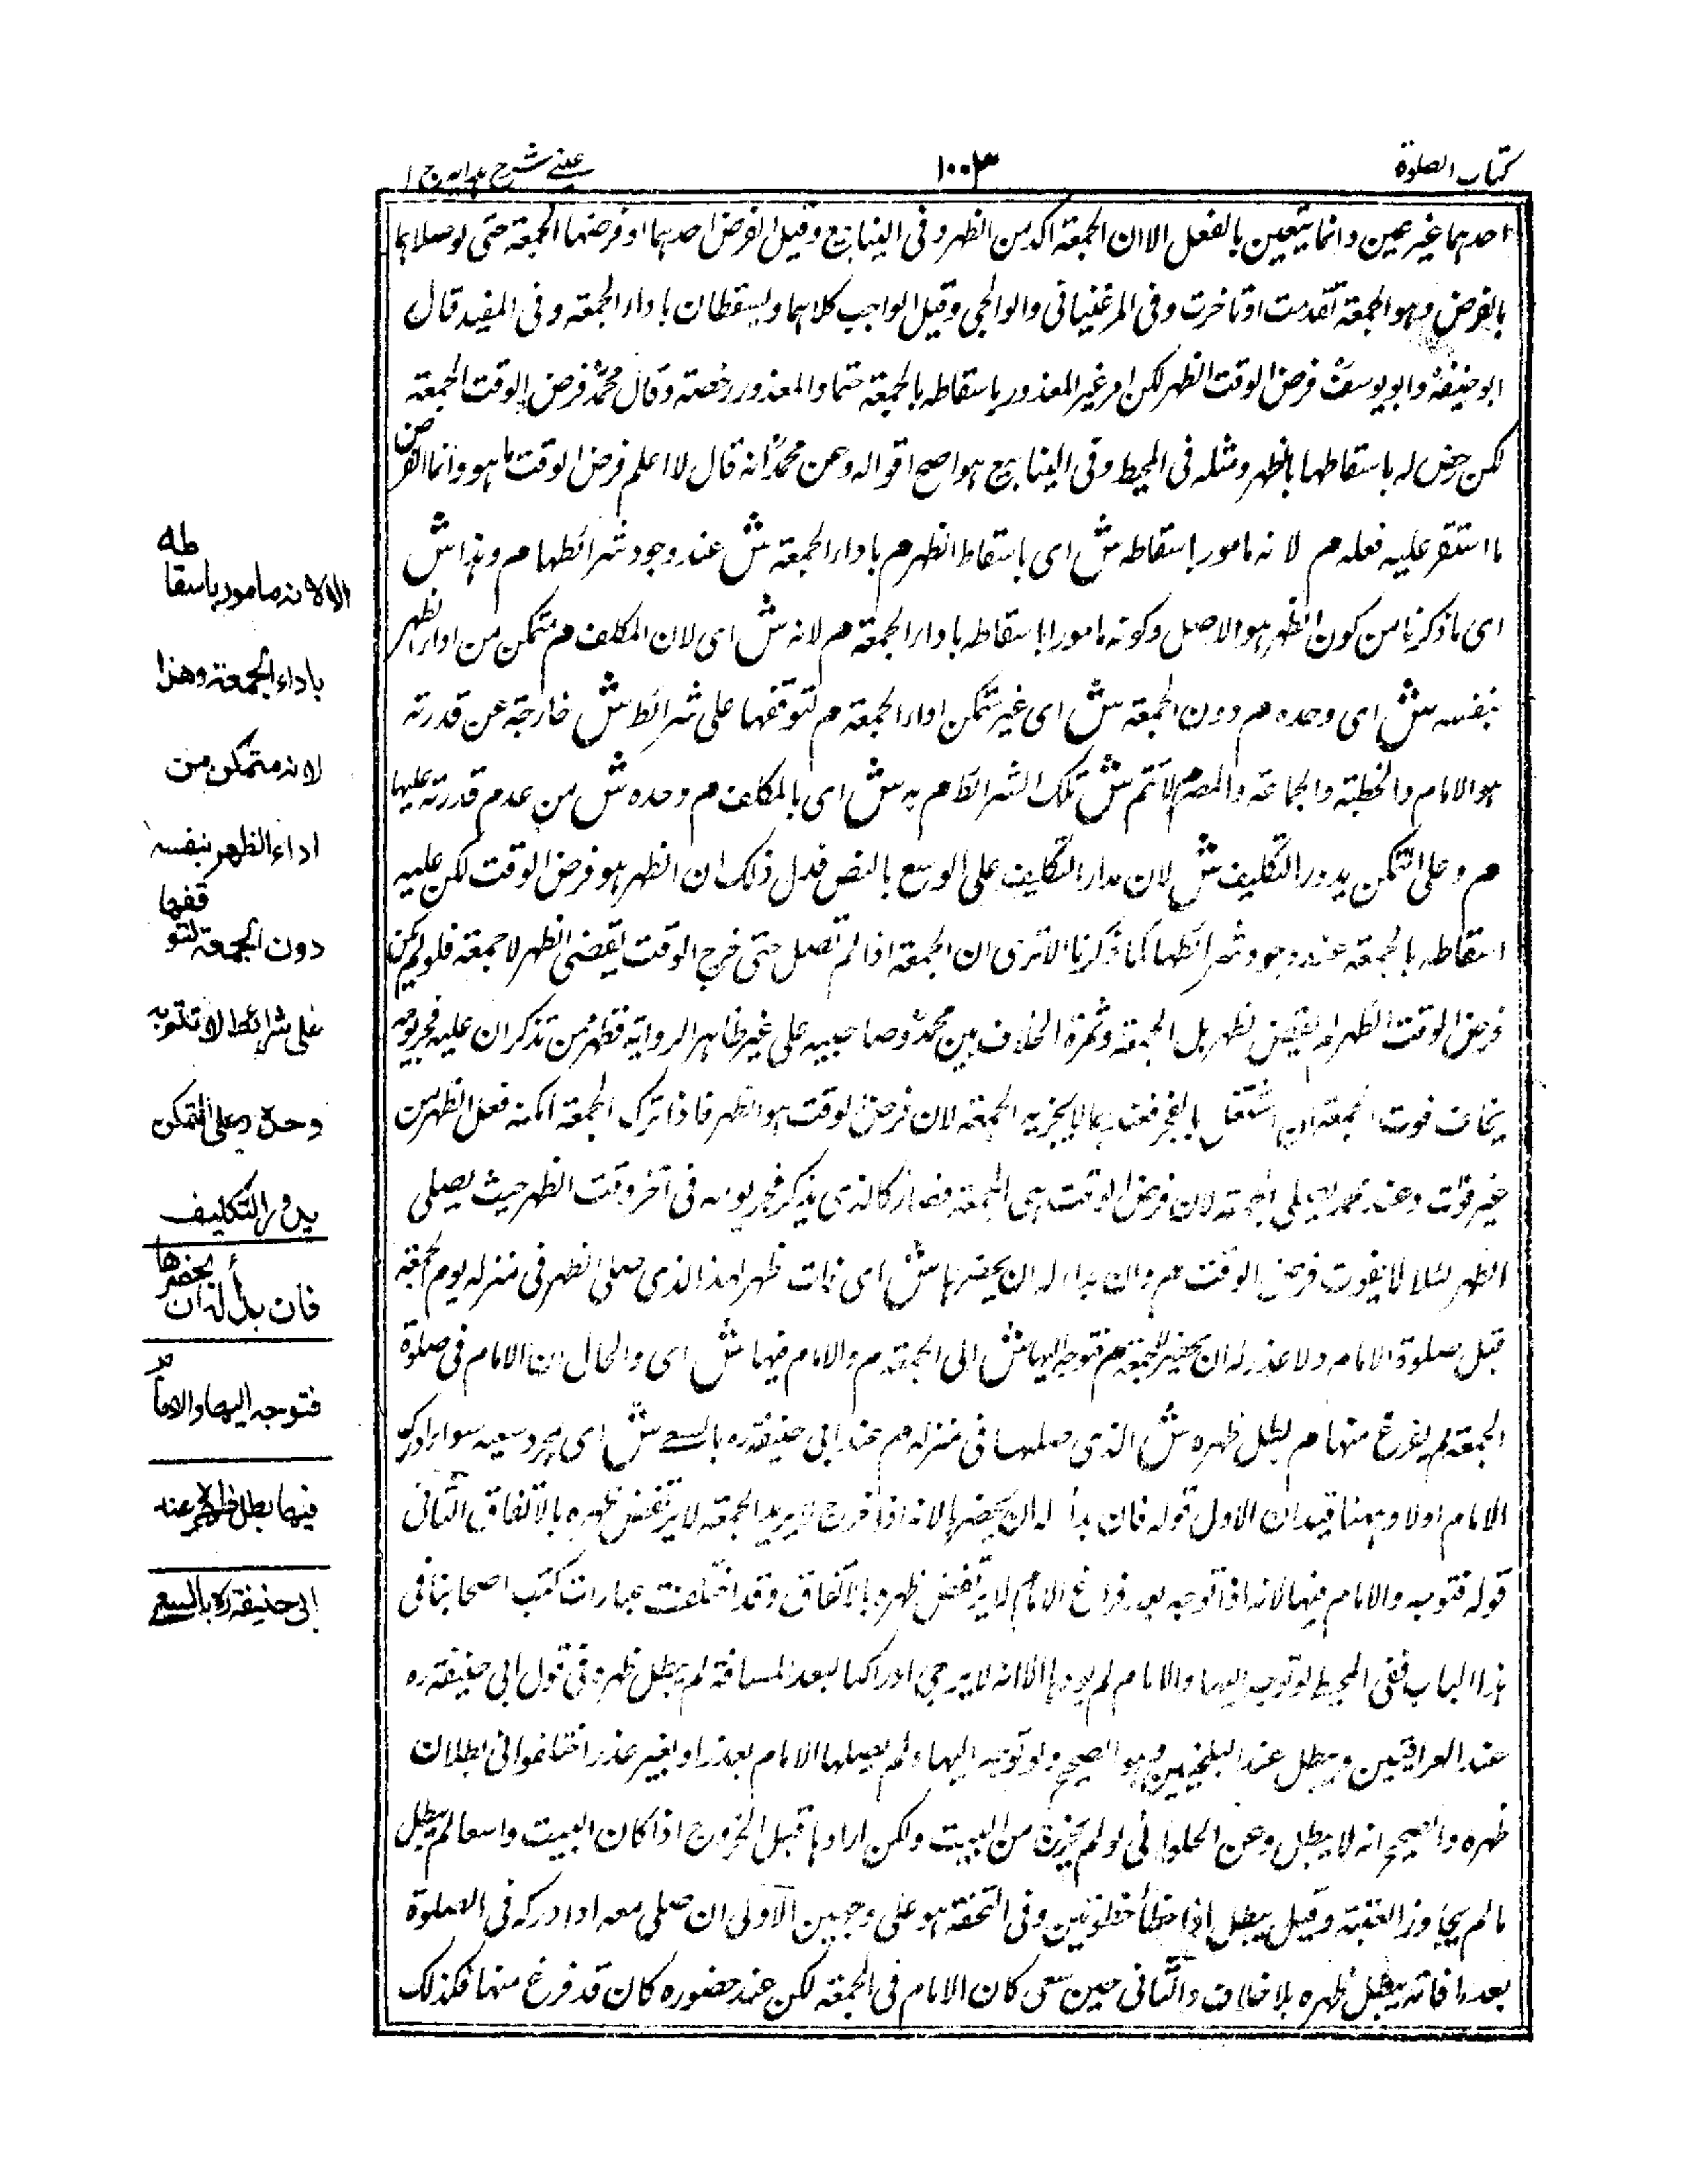 كتاب الصلوة
١٠٠٣
عينے شرح ہدایہ ج ١
احدہما غير عين وانما يتعين بالفعل الا ان الجمعة اكد من الظهر وفى الينابيع وقيل الفرض احدہما او فرضها الجمعة حتى لو صلاہما
بالفرض وہو الجمعة تقدمت او تاخرت وفى المرغينانى والوالجى وقيل الواجب كلاہما ويسقطان باداء الجمعة وفى المفيد قال
ابو حنيفةؒ وابو يوسفؒ فرض الوقت الظهر لكن امر غير المعذور باسقاطه بالجمعة حتما والمعذور رخصة وقال محمدؒ فرض الوقت الجمعة
لكن رخص له باسقاطها بالظهر ومثله فى المحيط وفى الينابيع ہو اصح اقواله وعن محمدؒ انه قال لا اعلم فرض الوقت ما ہو وانما الفرض
ما استقر عليه فعله م لانه مامور باسقاطه ش اى باسقاط الظهر م باداء الجمعة ش عند وجود شرائطها م وہذا ش
اى ما ذكرنا من كون الظهر ہو الاصل وكونه مامورا باسقاطه باداء الجمعة م لانه ش اى لان المكلف م متمكن من اداء الظهر
بنفسه ش اى وحده م دون الجمعة ش اى غير متمكن اداء الجمعة م لتوقفها على شرائط ش خارجة عن قدرته
ہو الامام والخطبة والجماعة والمصر م لا تتم ش تلك الشرائط م به ش اى بالمكلف م وحده ش من عدم قدرته عليها
م وعلى التمكن يدور التكليف ش لان مدار التكليف على الوسع بالنص فدل ذلك ان الظهر ہو فرض الوقت لكن عليه
اسقاطه بالجمعة عند وجود شرائطها كما ذكرنا الا ترى ان الجمعة اذا لم تصل حتى خرج الوقت يقضى الظهر لا جمعة فلو لم يكن
فرض الوقت الظهر لم يقض ظهر بل الجمعة وثمرة الخلاف بين محمدؒ وصاحبيه على غير ظاہر الرواية تظهر من تذكر ان عليه فجر يومه
يخاف فوت الجمعة ان اشتغل بالفجر فعندہما لا يجزيه الجمعة لان فرض الوقت ہو الظهر فاذا ترك الجمعة امكنه فعل الظهر من
غير فوت وعند محمد يصلى الجمعة لان فرض الوقت ہى الجمعة فصار كالذى يذكر فجر يومه فى آخر وقت الظهر حيث يصلى
الظهر لئلا يفوت فرض الوقت م وان بداء له ان يحضرہا ش اى فات ظهر ہذا الذى صلى الظهر فى منزله يوم الجمعة
قبل صلوة الامام ولا عذر له ان يحضر الجمعة م فتوجه اليها ش الى الجمعة م والامام فيها ش اى والحال ان الامام فى صلوة
الجمعة لم يفرغ منها م بطل ظهره ش الذى صلہا فى منزله م عند ابى حنيفة ره بالسعے ش اى بمجرد سعيه سواء ادرك
الامام اولا وہهنا قيدان الاول قوله فان بدأ له ان يحضرہا لانه اذا خرج لا يريد الجمعة لا يرتفض ظهره بالاتفاق الثانى
قوله فتوجه والامام فيها لانه اذا توجه بعد فراغ الامام لا يرتفض ظهره بالاتفاق وقد اختلفت عبارات كتب اصحابنا فى
ہذا الباب ففى المحيط لو توجه اليها والامام لم يؤدہا الا انه لا يرجى ادراكها لبعد المسافة لم يبطل ظهره فى قول ابى حنيفة ره
عند العراقيين ويبطل عند البلخيين وہو الصحيح ولو توجه اليها ولم يصلها الامام بعذر او بغير عذر اختلفوا فى بطلان
ظهره والصحيح انه لا يبطل وعن الحلوانى لو لم يخرج من البيت ولكن ارادہا قبل الخروج اذا كان البيت واسعا لم يبطل
ما لم يجاوز العتبة وقيل يبطل اذا خطأ خطوتين وفى التحفة ہو على وجهين الاولى ان صلى معه او ادركه فى الصلوة
بعد ما فاته يبطل ظهره بلا خلاف والثانى حين سعى كان الامام فى الجمعة لكن عند حضوره كان قد فرغ منها فكذلك
الا لانه مامور باسقاطه
باداء الجمعة وهذا
لانه متمكن من
اداء الظهر بنفسه
دون الجمعة لتوقفها
على شرائط لا تتم به
وحده وعلى التمكن
يدور التكليف
فان بدأ له ان يحضرها
فتوجه اليها والامام
فيها بطل ظهره عند
ابى حنيفة ره بالسعے